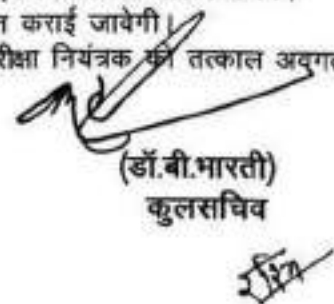 त कराई जावेगी।
रीक्षा नियंत्रक को तत्काल अवगत
(डॉ.बी.भारती)
कुलसचिव